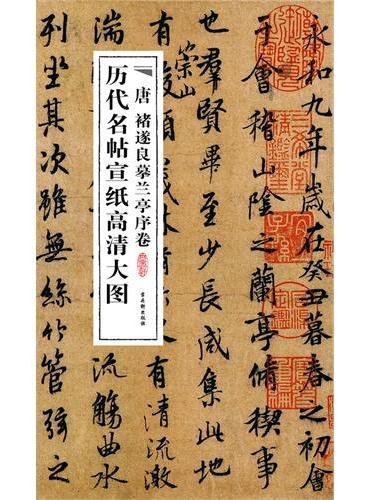 永和九年歲在癸丑暮春之初會
于會稽山陰之蘭亭脩稧事
也羣賢畢至少長咸集此地
崇山
有清流激
湍
流觴曲水
列坐其次雖無絲竹管弦之
唐 褚遂良摹兰亭序卷
历代名帖宣纸高清大图
古吴轩出版社